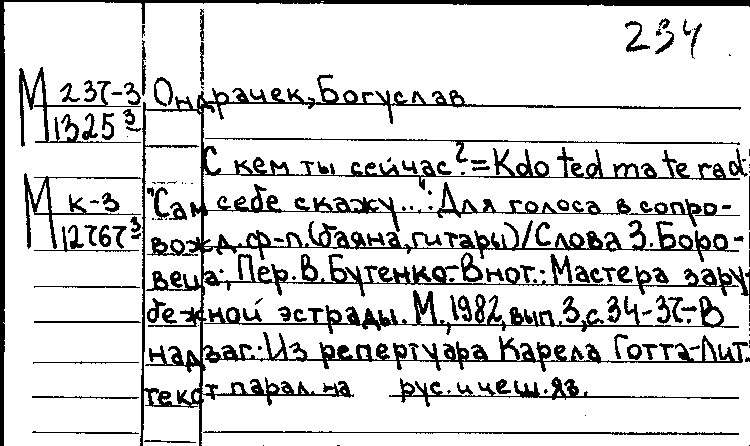 234
М 237-3 Ондрачек, Богуслав
1325³
С кем ты сейчас? = Kdo ted ma te rad:
М к-3 "Сам себе скажу...": Для голоса в сопро-
12767³ вожд. ф-п. (баяна, гитары) / Слова З. Боро-
веца; Пер. В. Бутенко.- В нот.: Мастера зару-
бежной эстрады. М., 1982, вып. 3, с. 34-37.- В
надзаг.: Из репертуара Карела Готта.- Лит.
текст парал. на рус. и чеш. яз.